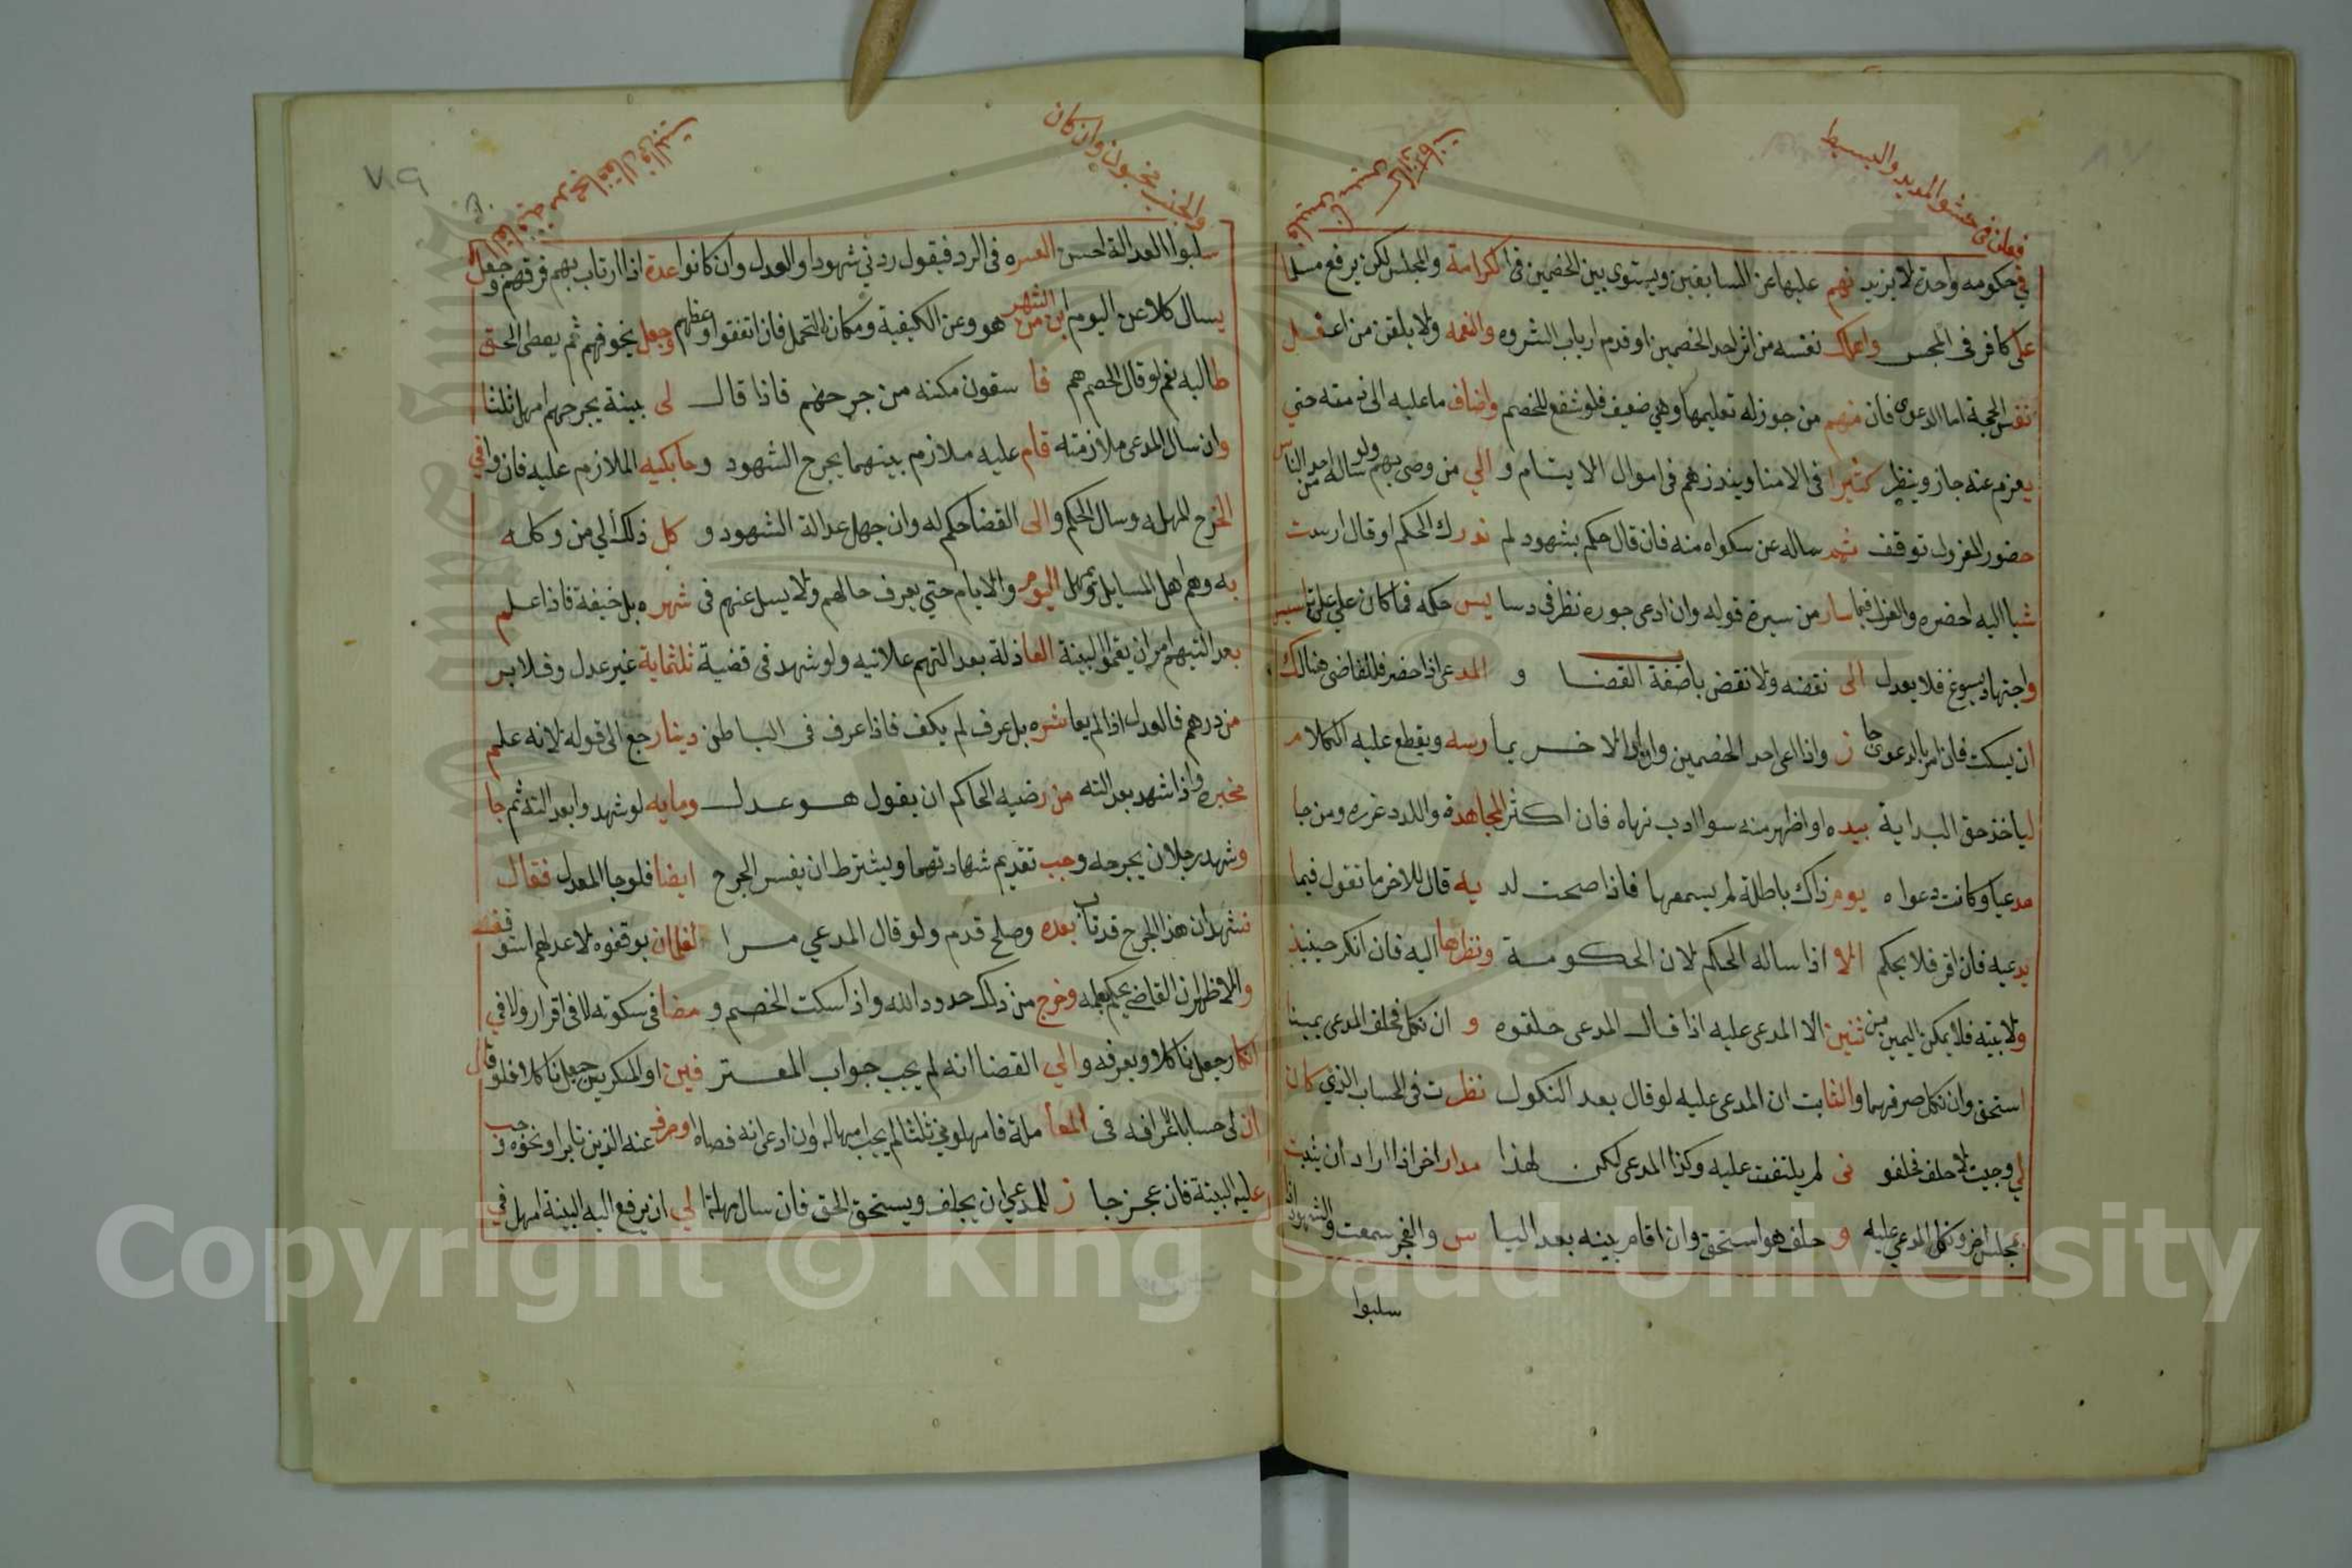 فعلن فى حشو المديد والبسيط
في حكومه واحدة لا يزيد نهم عليها عن المسابقين ويستوى بين الخصمين فى الكرامة والمجلس لكن يرفع مسلما
على كافر فى المجلس وامالك نفسه من اثر احد الخصمين او قدم ارباب الثروه والنعمه ولا يلقن من اعقل
نفس الحجة اما الدعوى فان منهم من جوز له تعليمها وهي ضعيف فلو شفع للخصم واضاف ما عليه الى ذمته حتي
يعزم عنه جاز وينظر كثيرا فى الامنا وينذرهم فى اموال الايتام و الي من وصى بهم ولو ساله احد من الناس
حضور المعزول توقف ثم ساله عن سكواه منه فان قال حكم بشهود لم ندرك الحكم او قال ارست
شيا اليه احضره والعزل فيما سار من سيرة قوله وان ادعى جوره نظر فى دسا يس حكمه فما كان علي على تاسيس
واجتهاد يسوغ فلا يعدل الى نقضه ولا نقض باضفة القضا و المدعى اذا حضر فللقاضى هنالك
ان يسكت فان امر بالدعوى جا ز واذا اعى احد الخصمين وان الاخر يمارسه ويقطع عليه الكلام
لياخذ حق البداية بيده او اظهر منه سوا ادب نهاه فان اكثر المجاهدة واللدد عزره ومن جا
مدعيا وكانت دعواه يوم ذاك باطلة لم يسمعها فاذا صحت لد يه قال للاخر ما تقول فيما
يدعيه فان اقر فلا يحكم الا اذا ساله الحكم لان الحكومة ونظرها اليه فان انكر حينيذ
ولا بينه فلا يمكن اليمين من ثنين الا المدعى عليه اذا قال المدعى حلفوه و ان نكل فحلف المدعى يمينا
استحق وان نكل صرفهما والثابت ان المدعى عليه لو قال بعد النكول نظرت فى الحساب الذي كان
لي وجيت لاحلف فحلفو نى لم يلتفت عليه وكذا المدعى لكن لهذا مدار اخر اذا اراد ان يثبت
بمجلس اخر ونكل المدعي عليه و حلف هو استحق وان اقام بينه بعد اليا س والفجر سمعت والشهود اذا
سلبوا
والجنب مخبون وان كان
٧٩
سلبوا العدالة احسن العسره فى الرد فيقول ردني شهودا والعدل وان كانوا عدة اذا ارتاب بهم فرقهم وجعل
يسال كلا عن اليوم اين من الشهر هو وعن الكيفية ومكان التحمل فان اتفقوا وعظهم وجعل يخوفهم ثم يعطى الحق
طالبه نعم لو قال الخصم هم فا سقون مكنه من جرحهم فاذا قال لى بينة يجرحهم امهل ثلثا
وان سال المدعى ملازمته قام عليه ملازم بينهما يجرح الشهود وجا بكيه الملازم عليه فان وافي
الخرج المهل له وسال الحكم والى القضا حكم له وان جهل عدالة الشهود و كل ذلك الي من وكله
به وهم اهل المسايل تمهل اليوم والايام حتي يعرف حالهم ولا يسل عنهم فى شهره بل خيفة فاذا علم
بعد التبهم امر ان يقموا البينة العاذلة بعد التهم علانيه ولو شهد فى قضية ثلثماية غير عدل وفلا بر
من درهم فالعدل اذا لم يعاشره بل عرف لم يكف فاذا عرف فى الباطن دينار جع الى قوله لانه علم
مخبره واذا شهد بعدالته من رضيه الحاكم ان يقول هو عدل ومايه لو شهدوا بعدالته ثم جا
وشهد رجلان يجرحه وجب تقديم شهادتهما ويشترط ان يفسر الجرح ايضا فلو جا المعدل فقال
نشهد ان هذا الجرح قد تاب بعده وصلح قدم ولو قال المدعي مرا لغلمان يوقفوه لاعدلهم استوقفه
والاظهر ان القاضي يحكم بعلمه وخرج من ذلك حدود الله واذا سكت الخصم و مضا فى سكوته لا فى اقرار ولا في
انكار جعل ناكلا ويعرفه والي القضا انه لم يجب جواب المعتر فين او المنكرين جعل ناكلا فلو قال
ان لى حسابا اعرافه فى المعا ملة فامهلوني ثلثا لم يجب امهاله وان ادعى انه قصاه او صرف عنه الذين تابرا ونحوه وجب
عليه البينة فان عجز جا ز للمدعي ان يحلف ويستحق الحق فان سال مهلتا لي ان يرفع اليه البينة امهل في
Copyright © King Saud University